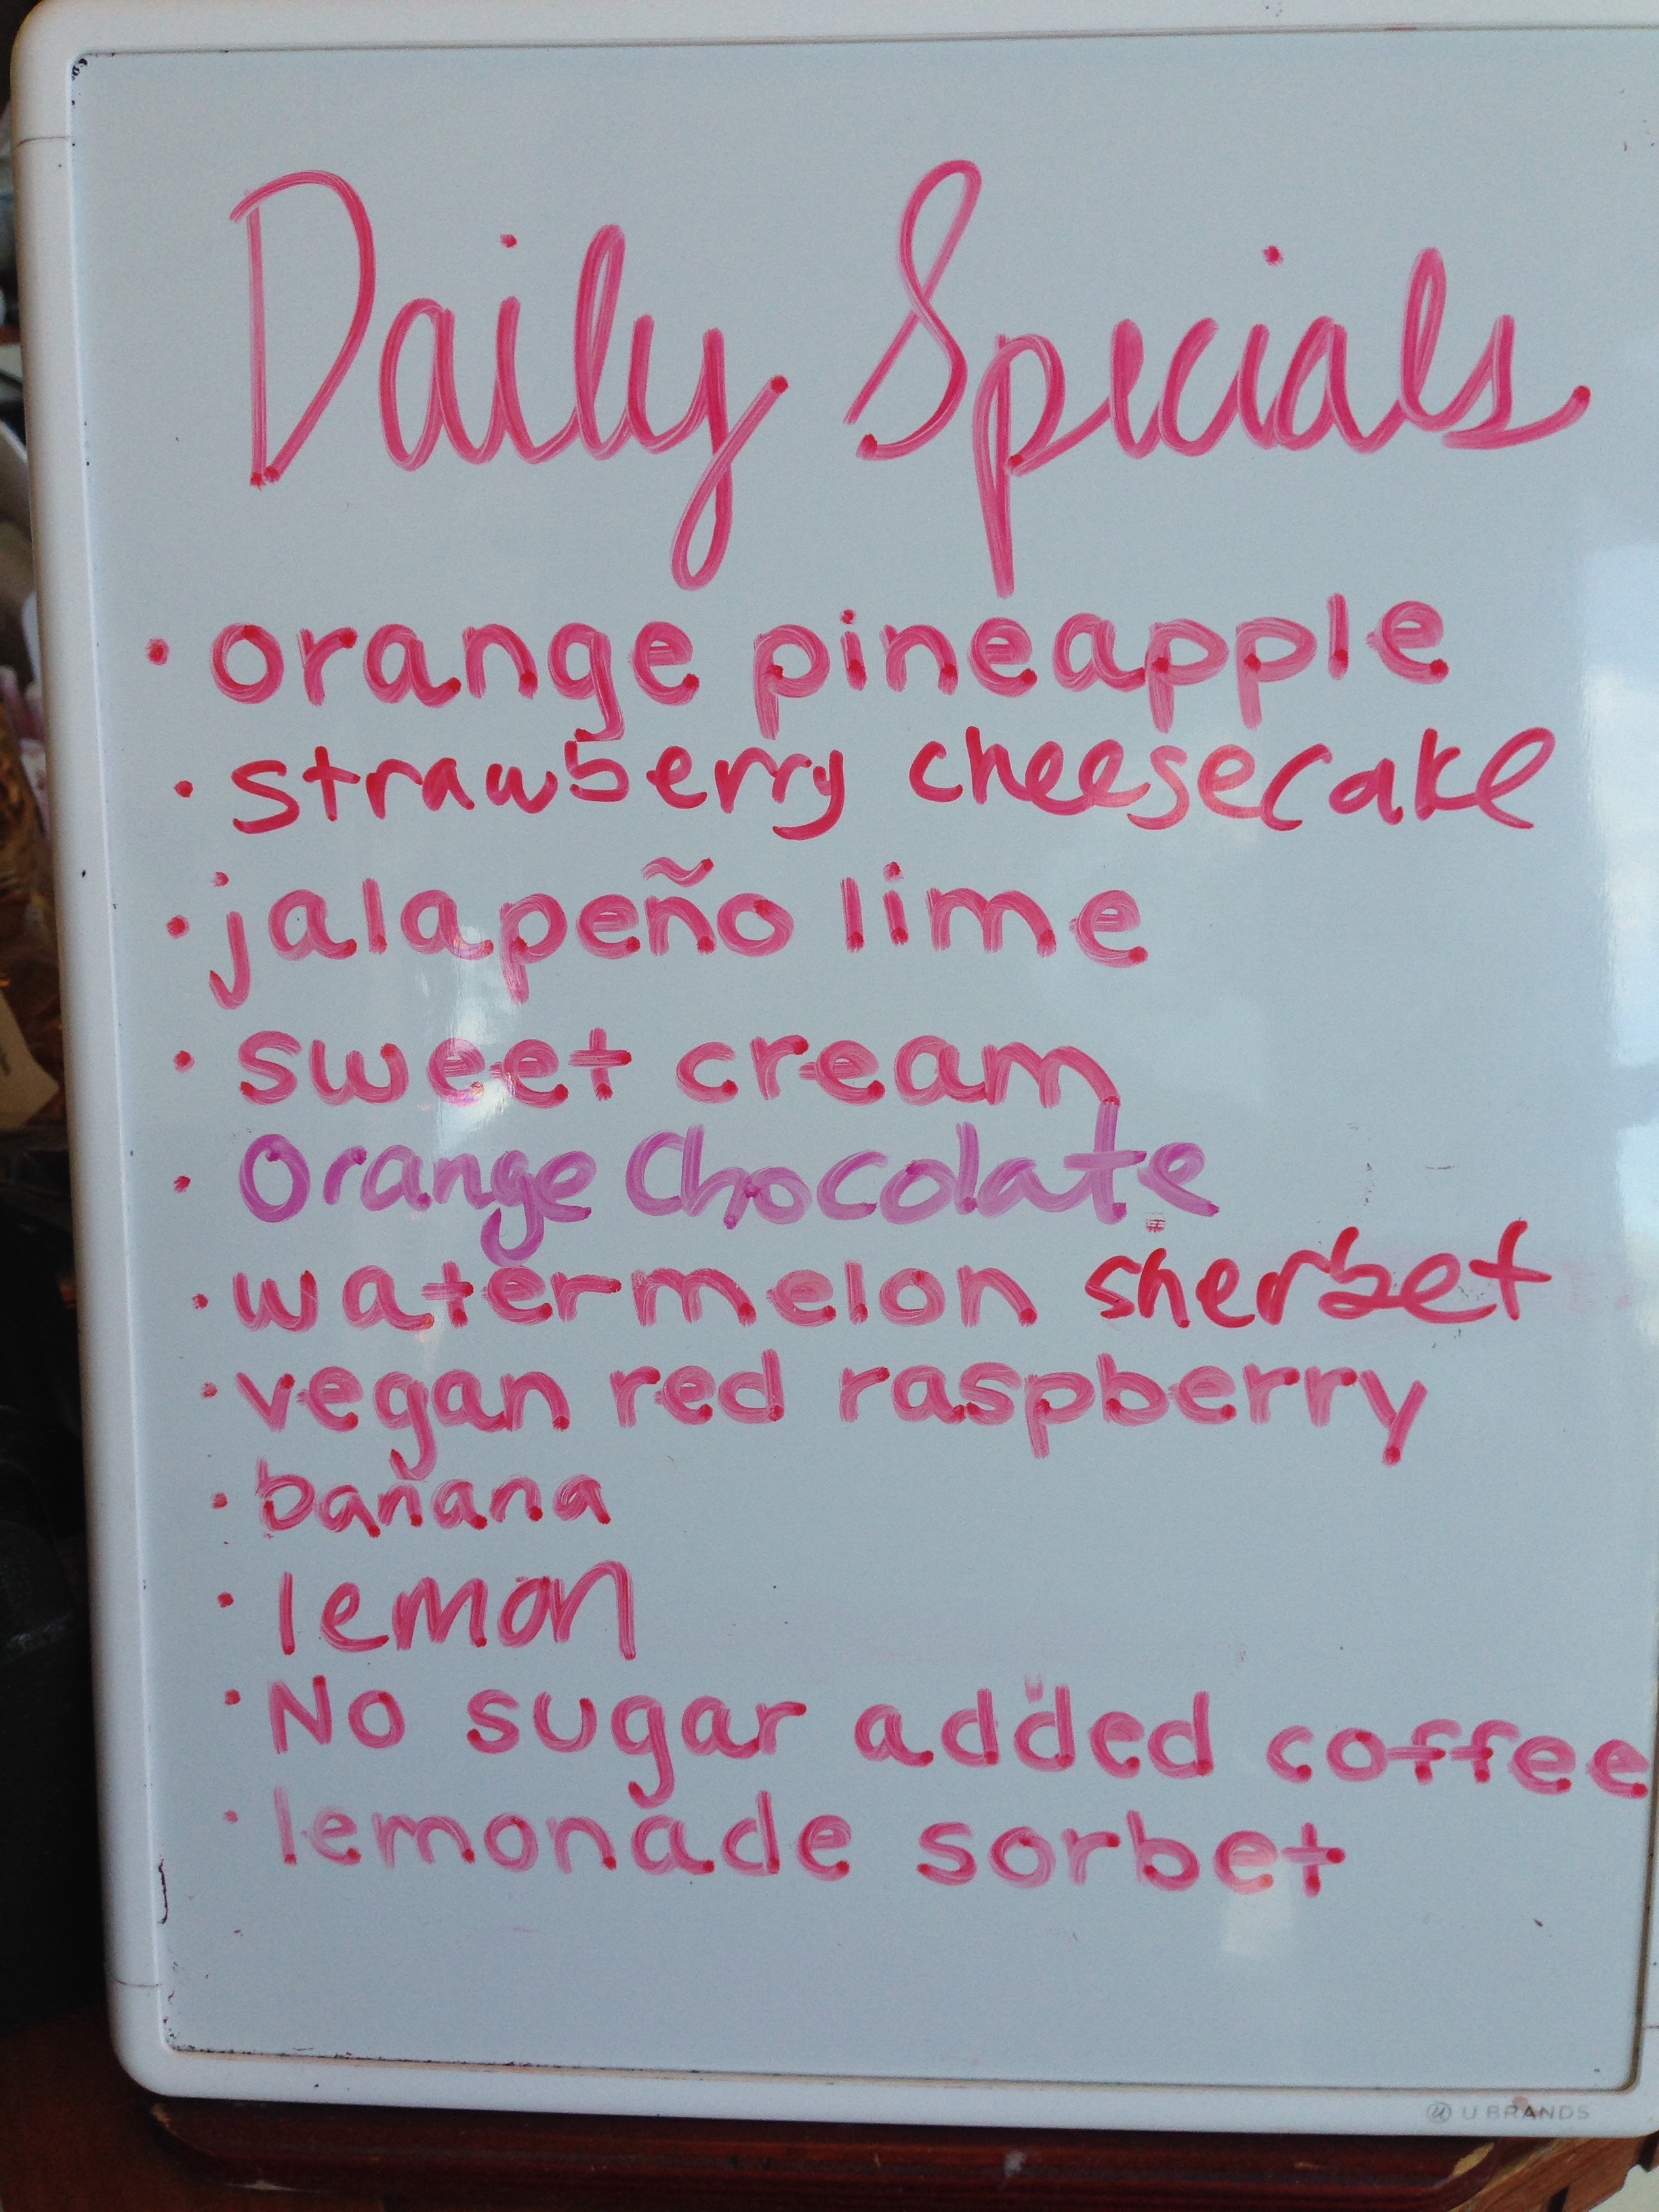 Daily Specials
· orange pineapple
· strawberry cheesecake
· jalapeño lime
· sweet cream
· Orange Chocolate
· watermelon sherbet
· vegan red raspberry
· banana
· lemon
· No sugar added coffee
· lemonade sorbet
U BRANDS